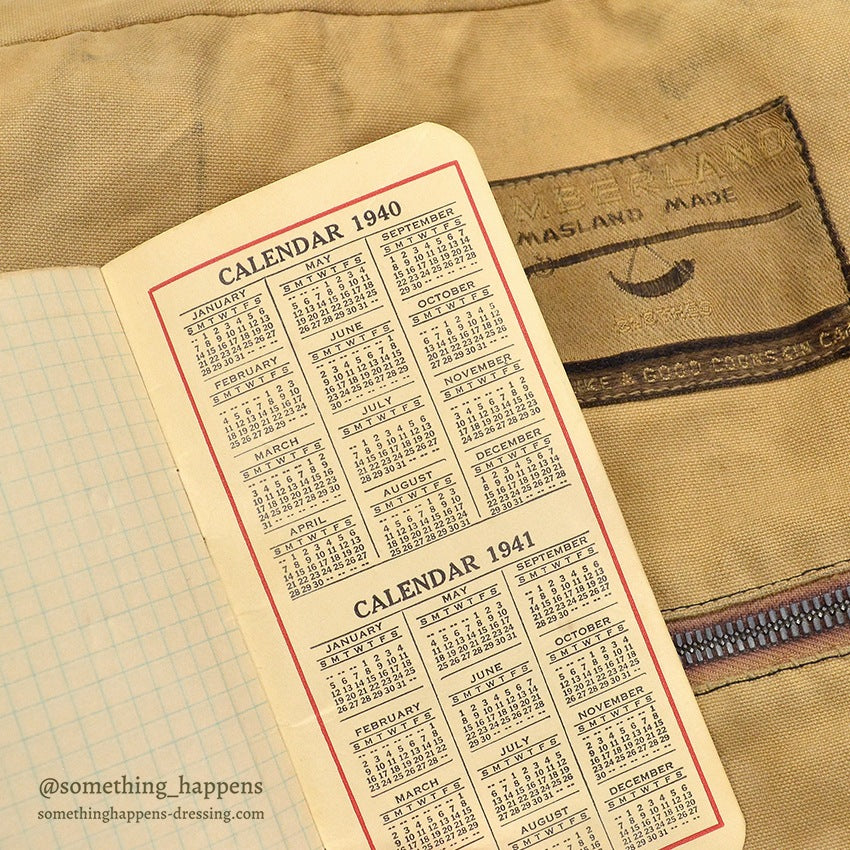 CALENDAR 1940
JANUARY
S M T W T F S
-- 1 2 3 4 5 6
7 8 9 10 11 12 13
14 15 16 17 18 19 20
21 22 23 24 25 26 27
28 29 30 31 -- -- --
FEBRUARY
S M T W T F S
-- -- -- -- 1 2 3
4 5 6 7 8 9 10
11 12 13 14 15 16 17
18 19 20 21 22 23 24
25 26 27 28 29 -- --
MARCH
S M T W T F S
-- -- -- -- -- 1 2
3 4 5 6 7 8 9
10 11 12 13 14 15 16
17 18 19 20 21 22 23
24 25 26 27 28 29 30
31 -- -- -- -- -- --
APRIL
S M T W T F S
-- 1 2 3 4 5 6
7 8 9 10 11 12 13
14 15 16 17 18 19 20
21 22 23 24 25 26 27
28 29 30 -- -- -- --
MAY
S M T W T F S
-- -- -- 1 2 3 4
5 6 7 8 9 10 11
12 13 14 15 16 17 18
19 20 21 22 23 24 25
26 27 28 29 30 31 --
JUNE
S M T W T F S
-- -- -- -- -- -- 1
2 3 4 5 6 7 8
9 10 11 12 13 14 15
16 17 18 19 20 21 22
23 24 25 26 27 28 29
30 -- -- -- -- -- --
JULY
S M T W T F S
-- 1 2 3 4 5 6
7 8 9 10 11 12 13
14 15 16 17 18 19 20
21 22 23 24 25 26 27
28 29 30 31 -- -- --
AUGUST
S M T W T F S
-- -- -- -- 1 2 3
4 5 6 7 8 9 10
11 12 13 14 15 16 17
18 19 20 21 22 23 24
25 26 27 28 29 30 31
SEPTEMBER
S M T W T F S
1 2 3 4 5 6 7
8 9 10 11 12 13 14
15 16 17 18 19 20 21
22 23 24 25 26 27 28
29 30 -- -- -- -- --
OCTOBER
S M T W T F S
-- -- 1 2 3 4 5
6 7 8 9 10 11 12
13 14 15 16 17 18 19
20 21 22 23 24 25 26
27 28 29 30 31 -- --
NOVEMBER
S M T W T F S
-- -- -- -- -- 1 2
3 4 5 6 7 8 9
10 11 12 13 14 15 16
17 18 19 20 21 22 23
24 25 26 27 28 29 30
DECEMBER
S M T W T F S
1 2 3 4 5 6 7
8 9 10 11 12 13 14
15 16 17 18 19 20 21
22 23 24 25 26 27 28
29 30 31 -- -- -- --
CALENDAR 1941
JANUARY
S M T W T F S
-- -- -- 1 2 3 4
5 6 7 8 9 10 11
12 13 14 15 16 17 18
19 20 21 22 23 24 25
26 27 28 29 30 31 --
FEBRUARY
S M T W T F S
-- -- -- -- -- -- 1
2 3 4 5 6 7 8
9 10 11 12 13 14 15
16 17 18 19 20 21 22
23 24 25 26 27 28 --
MARCH
S M T W T F S
MAY
S M T W T F S
-- -- -- -- 1 2 3
4 5 6 7 8 9 10
11 12 13 14 15 16 17
18 19 20 21 22 23 24
25 26 27 28 29 30 31
JUNE
S M T W T F S
1 2 3 4 5 6 7
8 9 10 11 12 13 14
15 16 17 18 19 20 21
22 23 24 25 26 27 28
29 30 -- -- -- -- --
JULY
S M T W T F S
-- -- 1 2 3 4 5
6 7 8 9 10 11 12
13 14 15 16 17 18 19
20 21 22 23 24 25 26
27 28 29 30 31 -- --
AUGUST
S M T W T F S
SEPTEMBER
S M T W T F S
-- 1 2 3 4 5 6
7 8 9 10 11 12 13
14 15 16 17 18 19 20
21 22 23 24 25 26 27
28 29 30 -- -- -- --
OCTOBER
S M T W T F S
-- -- -- 1 2 3 4
5 6 7 8 9 10 11
12 13 14 15 16 17 18
19 20 21 22 23 24 25
26 27 28 29 30 31 --
NOVEMBER
S M T W T F S
-- -- -- -- -- -- 1
2 3 4 5 6 7 8
9 10 11 12 13 14 15
16 17 18 19 20 21 22
23 24 25 26 27 28 29
30 -- -- -- -- -- --
DECEMBER
S M T W T F S
-- 1 2 3 4 5 6
7 8 9 10 11 12 13
14 15 16 17 18 19 20
21 22 23 24 25 26 27
28 29 30 31 -- -- --
MBERLAND
MASLAND MADE
KE A GOOD COOKS ON CA
@something_happens
somethinghappens-dressing.com